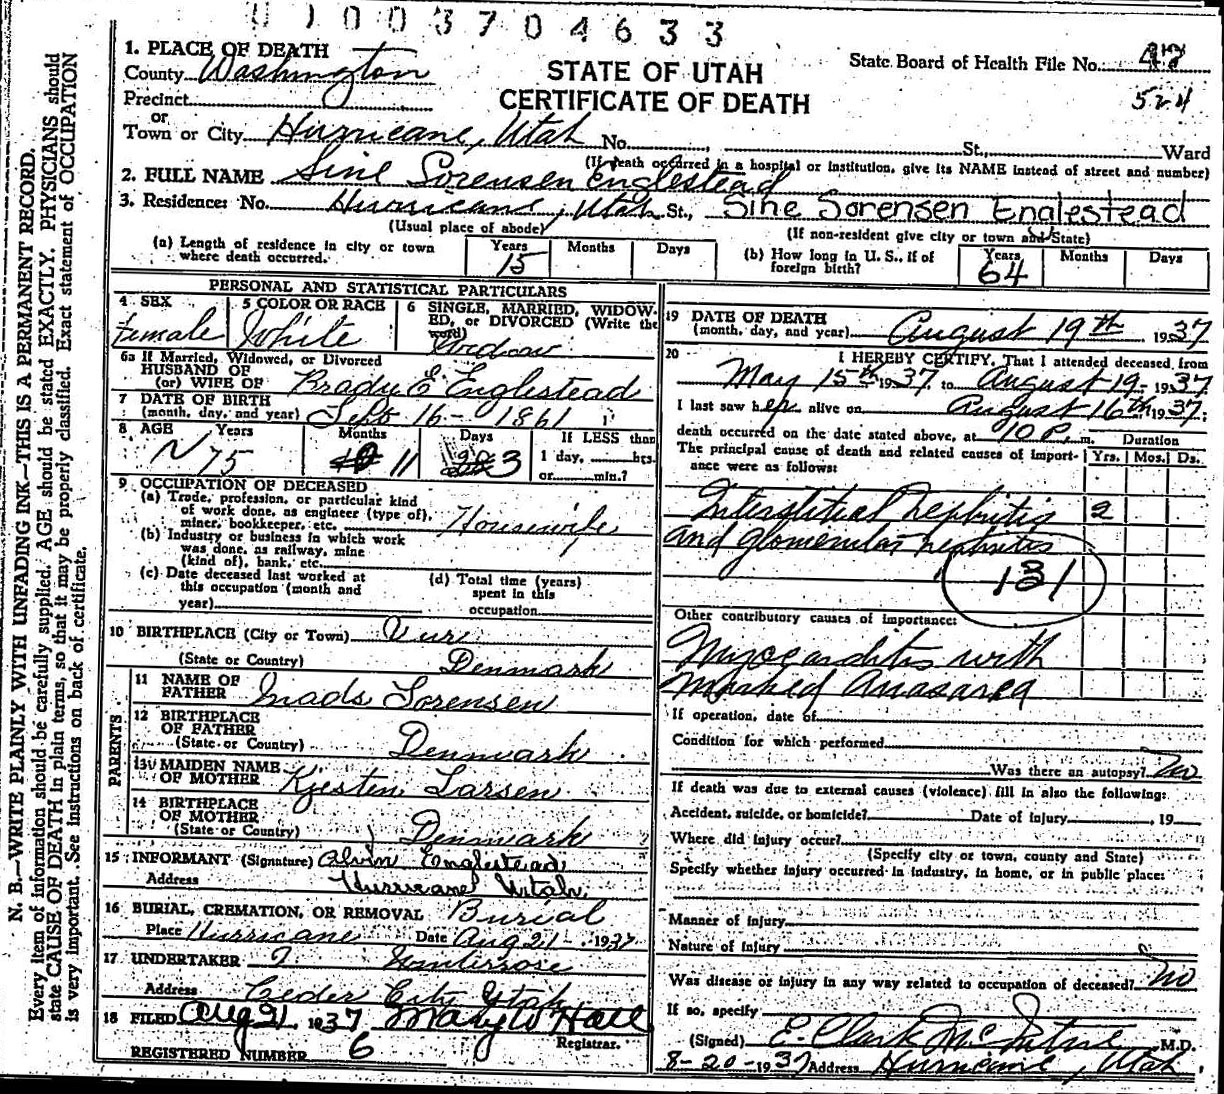 0 1 0 0 3 7 0 4 6 3 3
1. PLACE OF DEATH
County Washington
STATE OF UTAH
CERTIFICATE OF DEATH
State Board of Health File No. 47
524
Precinct
or
Town or City Hurricane, Utah No. , St., Ward
(If death occurred in a hospital or institution, give its NAME instead of street and number)
2. FULL NAME Sine Sorensen Englestead
3. Residence: No. Hurricane, Utah St., Sine Sorensen Englestead
(Usual place of abode)
(If non-resident give city or town and State)
(a) Length of residence in city or town where death occurred. Years 15 Months Days
(b) How long in U. S., if of foreign birth? Years 64 Months Days
PERSONAL AND STATISTICAL PARTICULARS
4 SEX Female
5 COLOR OR RACE White
6 SINGLE, MARRIED, WIDOWED, or DIVORCED (Write the word) Widow
6a If Married, Widowed, or Divorced
HUSBAND OF
(or) WIFE OF Brady E Englestead
7 DATE OF BIRTH
(month, day, and year) Sept 16 - 1861
8 AGE Years 75 Months 11 Days 3
If LESS than
1 day, hrs.
or min.?
9 OCCUPATION OF DECEASED
(a) Trade, profession, or particular kind
of work done, as engineer (type of),
miner, bookkeeper, etc. Housewife
(b) Industry or business in which work
was done, as railway, mine
(kind of), bank, etc.
(c) Date deceased last worked at
this occupation (month and
year)
(d) Total time (years)
spent in this
occupation
10 BIRTHPLACE (City or Town)
(State or Country) Denmark
PARENTS
11 NAME OF
FATHER Mads Sorensen
12 BIRTHPLACE
OF FATHER
(State or Country) Denmark
13 MAIDEN NAME
OF MOTHER Kjesten Larsen
14 BIRTHPLACE
OF MOTHER
(State or Country) Denmark
15 INFORMANT (Signature) Alvin Englestead
Address Hurricane Utah
16 BURIAL, CREMATION, OR REMOVAL Burial
Place Hurricane Date Aug 21 1937
17 UNDERTAKER
Address Cedar City Utah
18 FILED Aug 21, 1937 Mary W Hall
Registrar.
REGISTERED NUMBER 6
19 DATE OF DEATH
(month, day, and year) August 19th 1937
20 I HEREBY CERTIFY, That I attended deceased from
May 15th 1937, to August 19- 1937
I last saw her alive on August 16th 1937;
death occurred on the date stated above, at 10 P. m.
The principal cause of death and related causes of importance were as follows:
Duration
Yrs. Mos. Ds.
Interstitial nephritis 2
and glomerular nephritis
131
Other contributory causes of importance:
Myocarditis with
Marked Anasarca
If operation, date of
Condition for which performed
Was there an autopsy? No
If death was due to external causes (violence) fill in also the following:
Accident, suicide, or homicide? Date of injury , 19
Where did injury occur?
(Specify city or town, county and State)
Specify whether injury occurred in industry, in home, or in public place:
Manner of injury
Nature of injury
Was disease or injury in any way related to occupation of deceased? No
If so, specify
(Signed) E. Clark McIntire M.D.
8-20-1937 Address Hurricane, Utah
N. B.—WRITE PLAINLY WITH UNFADING INK—THIS IS A PERMANENT RECORD.
Every item of information should be carefully supplied. AGE should be stated EXACTLY. PHYSICIANS should
state CAUSE OF DEATH in plain terms, so that it may be properly classified. Exact statement of OCCUPATION
is very important. See instructions on back of certificate.